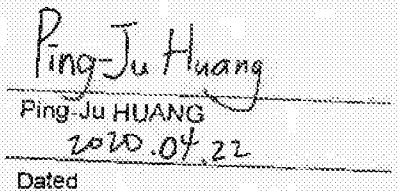 Ping-Ju Huang
Ping-Ju HUANG
2020.04.22
Dated